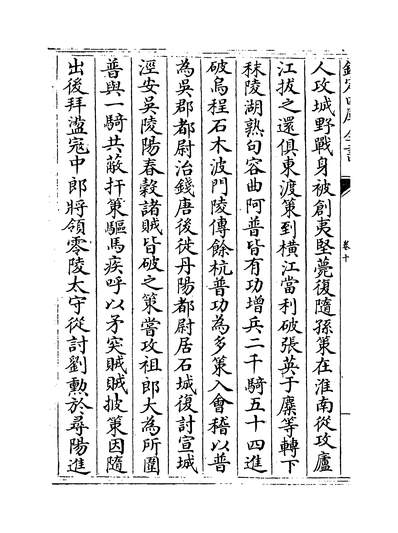 卷十
人攻城野戰身被創夷堅薨復隨孫策在淮南從攻廬
江拔之還俱東渡策到橫江當利破張英于麋等轉下
秣陵湖熟句容曲阿普皆有功增兵二千騎五十四進
破烏程石木波門陵傳餘杭普功為多策入會稽以普
為吳郡都尉治錢唐後徙丹陽都尉居石城復討宣城
涇安吳陵陽春穀諸賊皆破之策嘗攻祖郎大為所圍
普與一騎共蔽扞策驅馬疾呼以矛突賊賊披策因隨
出後拜盪冦中郎將領零陵太守從討劉勲於尋陽進